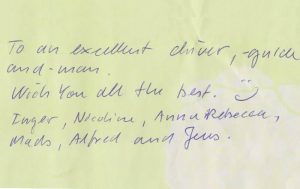 To an excellent driver, -guide
and-man.
Wish You all the best.
Inger, Nicoline, Anna Rebecca,
Mads, Alfred and Jens.